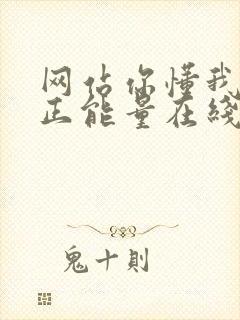 网站你懂我
正能量在线
鬼十則